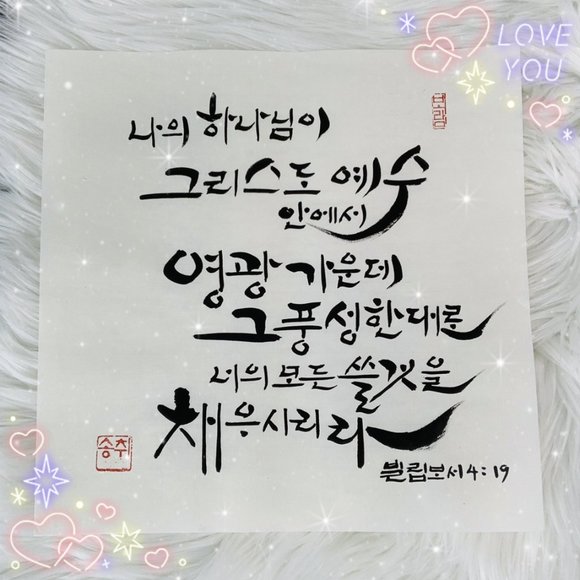 LOVE
YOU
나의 하나님이
그리스도 예수
안에서
영광 가운데
그 풍성한대로
너의 모든 쓸것을
채우시리라
빌립보서 4:19
송추